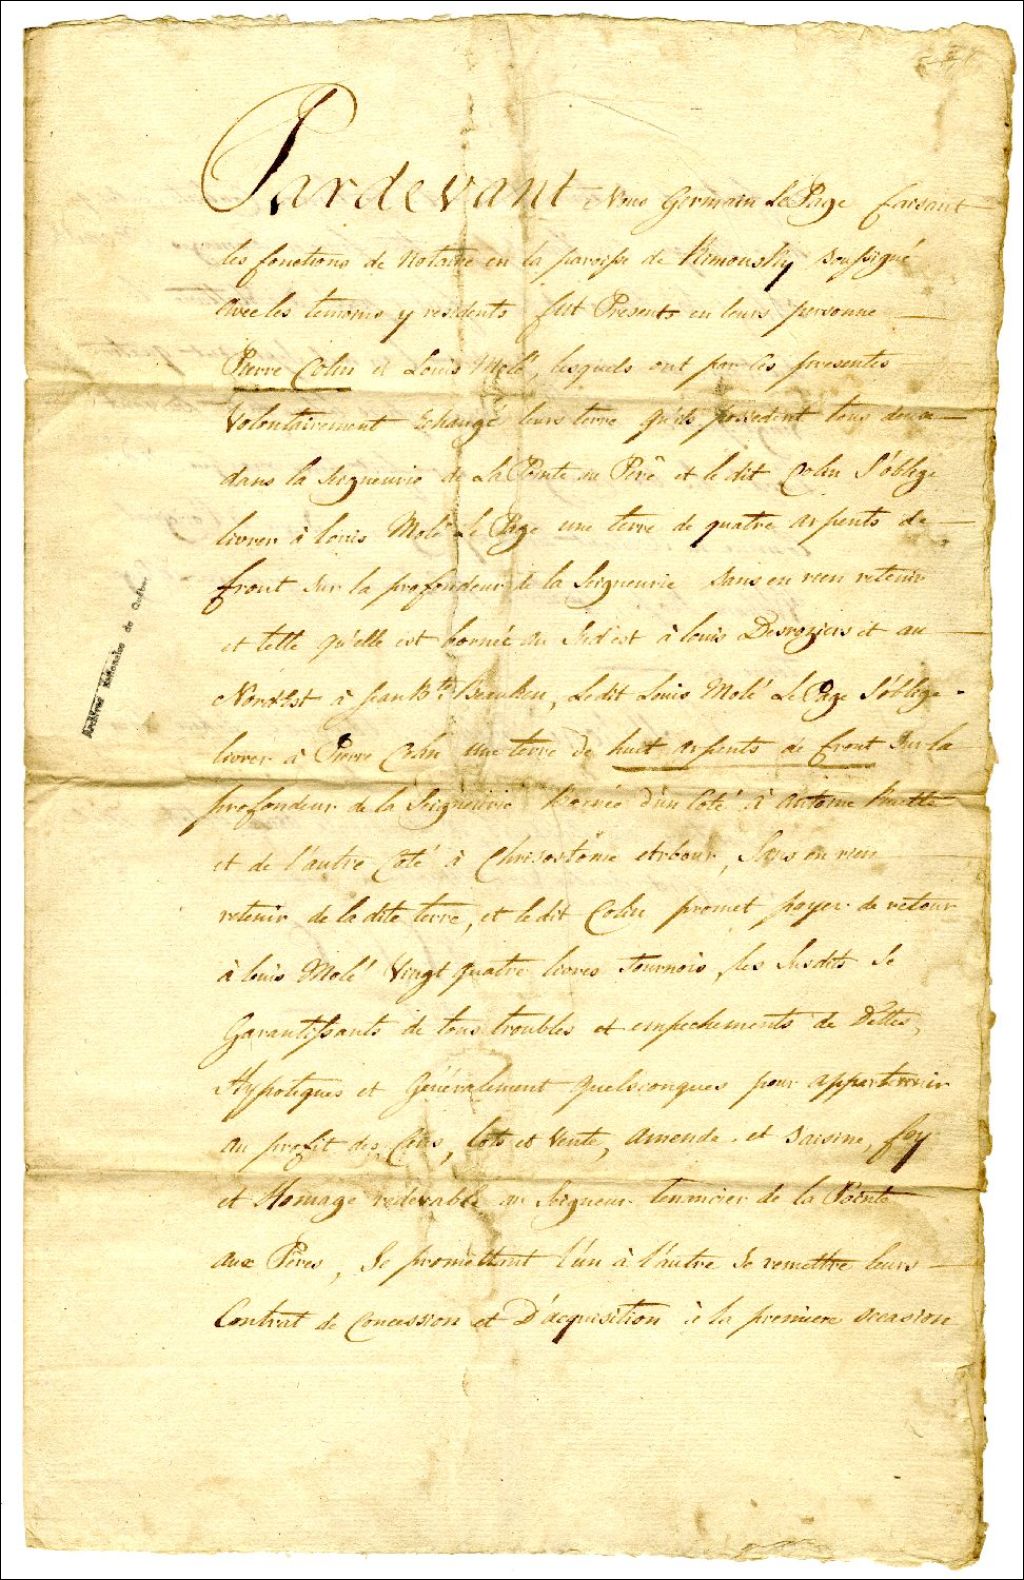 Pardevant Nous Germain LePage faisant
les fonctions de Notaire en la paroisse de Rimousky soussigné
avec les temoins y residents fut Presents en leurs personne
Pierre Colin et Louis Molé, lesquels ont par ces presentes
Volontairement Echangé leurs terre qu'ils possedent tous deux
dans la Seigneurie de La Pointe au Pere et le dit Colin S'oblige
livrer à louis Molé Le Page une terre de quatre arpents de
front sur la profondeur de la Seigneurie sans en rien retenir
et telle qu'elle est bornée au Sud'est à louis Desroziers et au
Nord'Est à Jean Bte , Ledit Louis Molé Le Page S'oblige
livrer à Pierre Colin une terre de huit arpents de front sur la
profondeur de la Seigneurie Bornée d'un Coté à Antoine Ruette
et de l'autre Coté à Chrisostôme , Sans en rien
retenir de la dite terre, et le dit Colin promet payer de retour
à louis Molé Vingt quatre livres tournois, les Susdits Se
Garantissants de tous troubles et empechements de Dettes,
Hypoteques et Généralement Quelsconques pour appartennir
au profit des Cens, lots et Vente, amende et saisine, foy
et Homage redevable au Seigneur tenancier de la Pointe
aux Peres, Se promettant l'un à l'autre Se remettre leurs
Contrat de Concession et D'acquisition à la premiere occasion
Archives Nationales du Québec